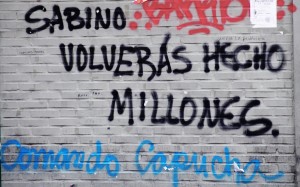 SABINO
VOLVERÁS HECHO
MILLONES.
Comando Capucha